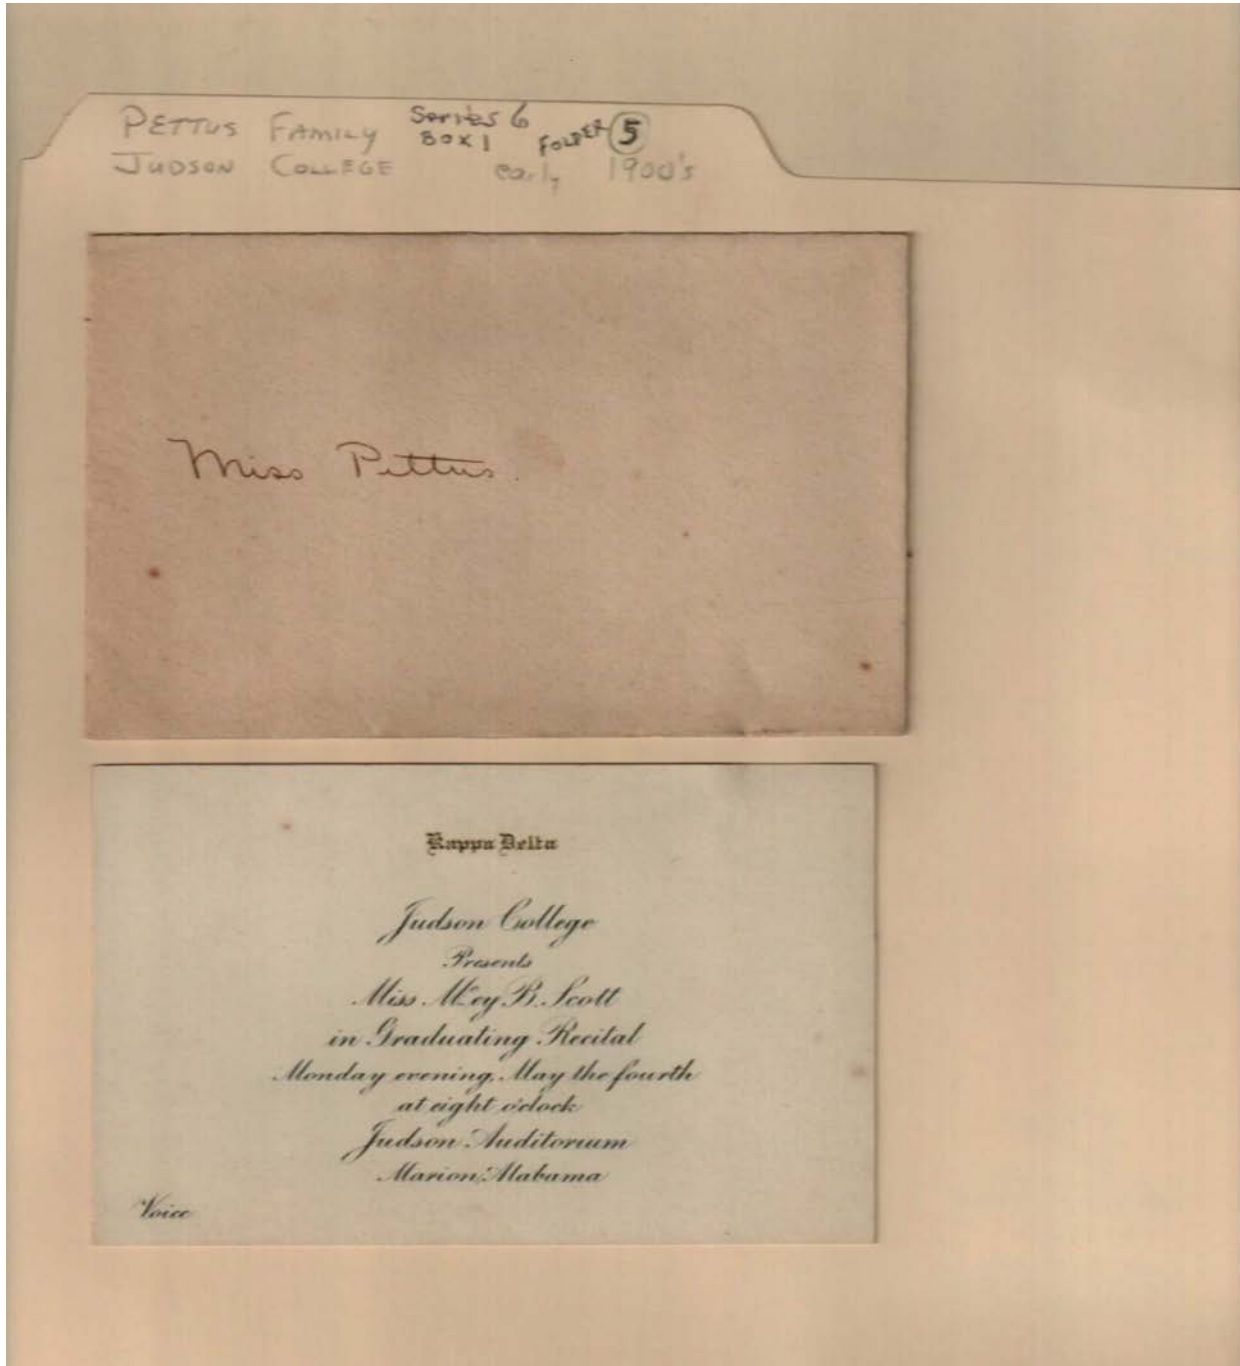 PETTUS FAMILY Series 6
BOX 1 FOLDER 5
JUDSON COLLEGE early 1900's
Miss Pettus.
Kappa Delta
Judson College
Presents
Miss B. Scott
in Graduating Recital
Monday evening, May the fourth
at eight o'clock
Judson Auditorium
Marion, Alabama
Voice